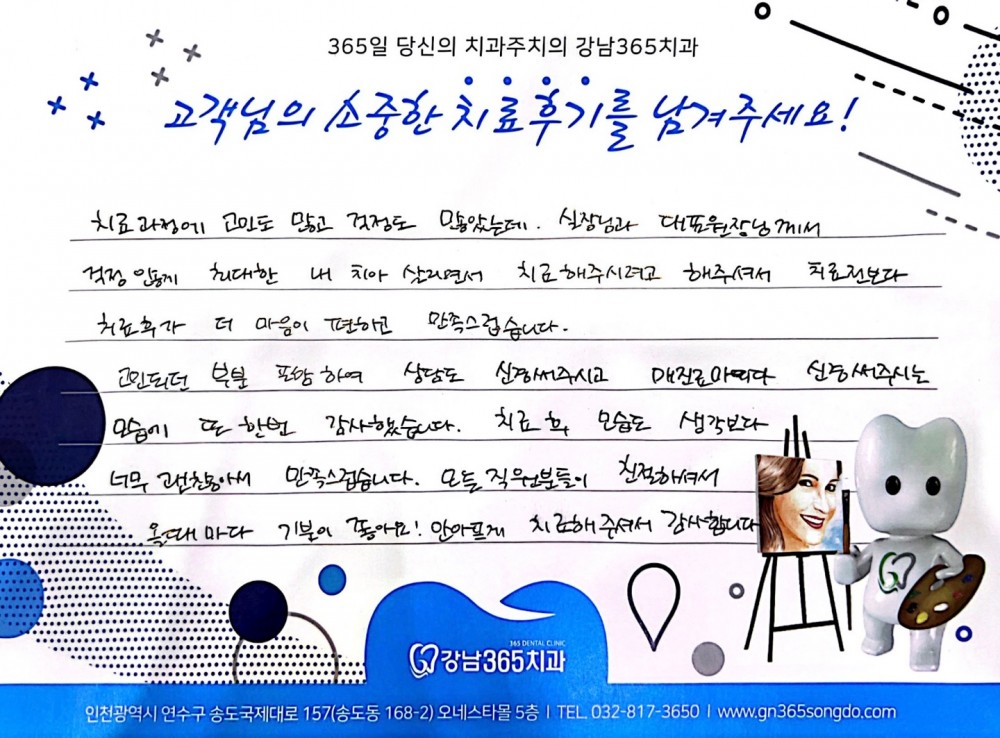 365일 당신의 치과주치의 강남365치과
고객님의 소중한 치료후기를 남겨주세요!
치료과정에 고민도 많고 걱정도 많았는데. 실장님과 대표원장님께서
걱정 안되게 최대한 내 치아 살리면서 치료해주시려고 해주셔서 치료전보다
치료후가 더 마음이 편하고 만족스럽습니다.
고민되던 부분 포함하여 상담도 신경써주시고 매진료마다 신경써주시는
모습에 또 한번 감사했습니다. 치료 후 모습도 생각보다
너무 괜찮아서 만족스럽습니다. 모든 직원분들이 친절하셔서
올때마다 기분이 좋아요! 안아프게 치료해주셔서 감사합니다
365 DENTAL CLINIC
강남365치과
인천광역시 연수구 송도국제대로 157(송도동 168-2) 오네스타몰 5층 | TEL. 032-817-3650 | www.gn365songdo.com